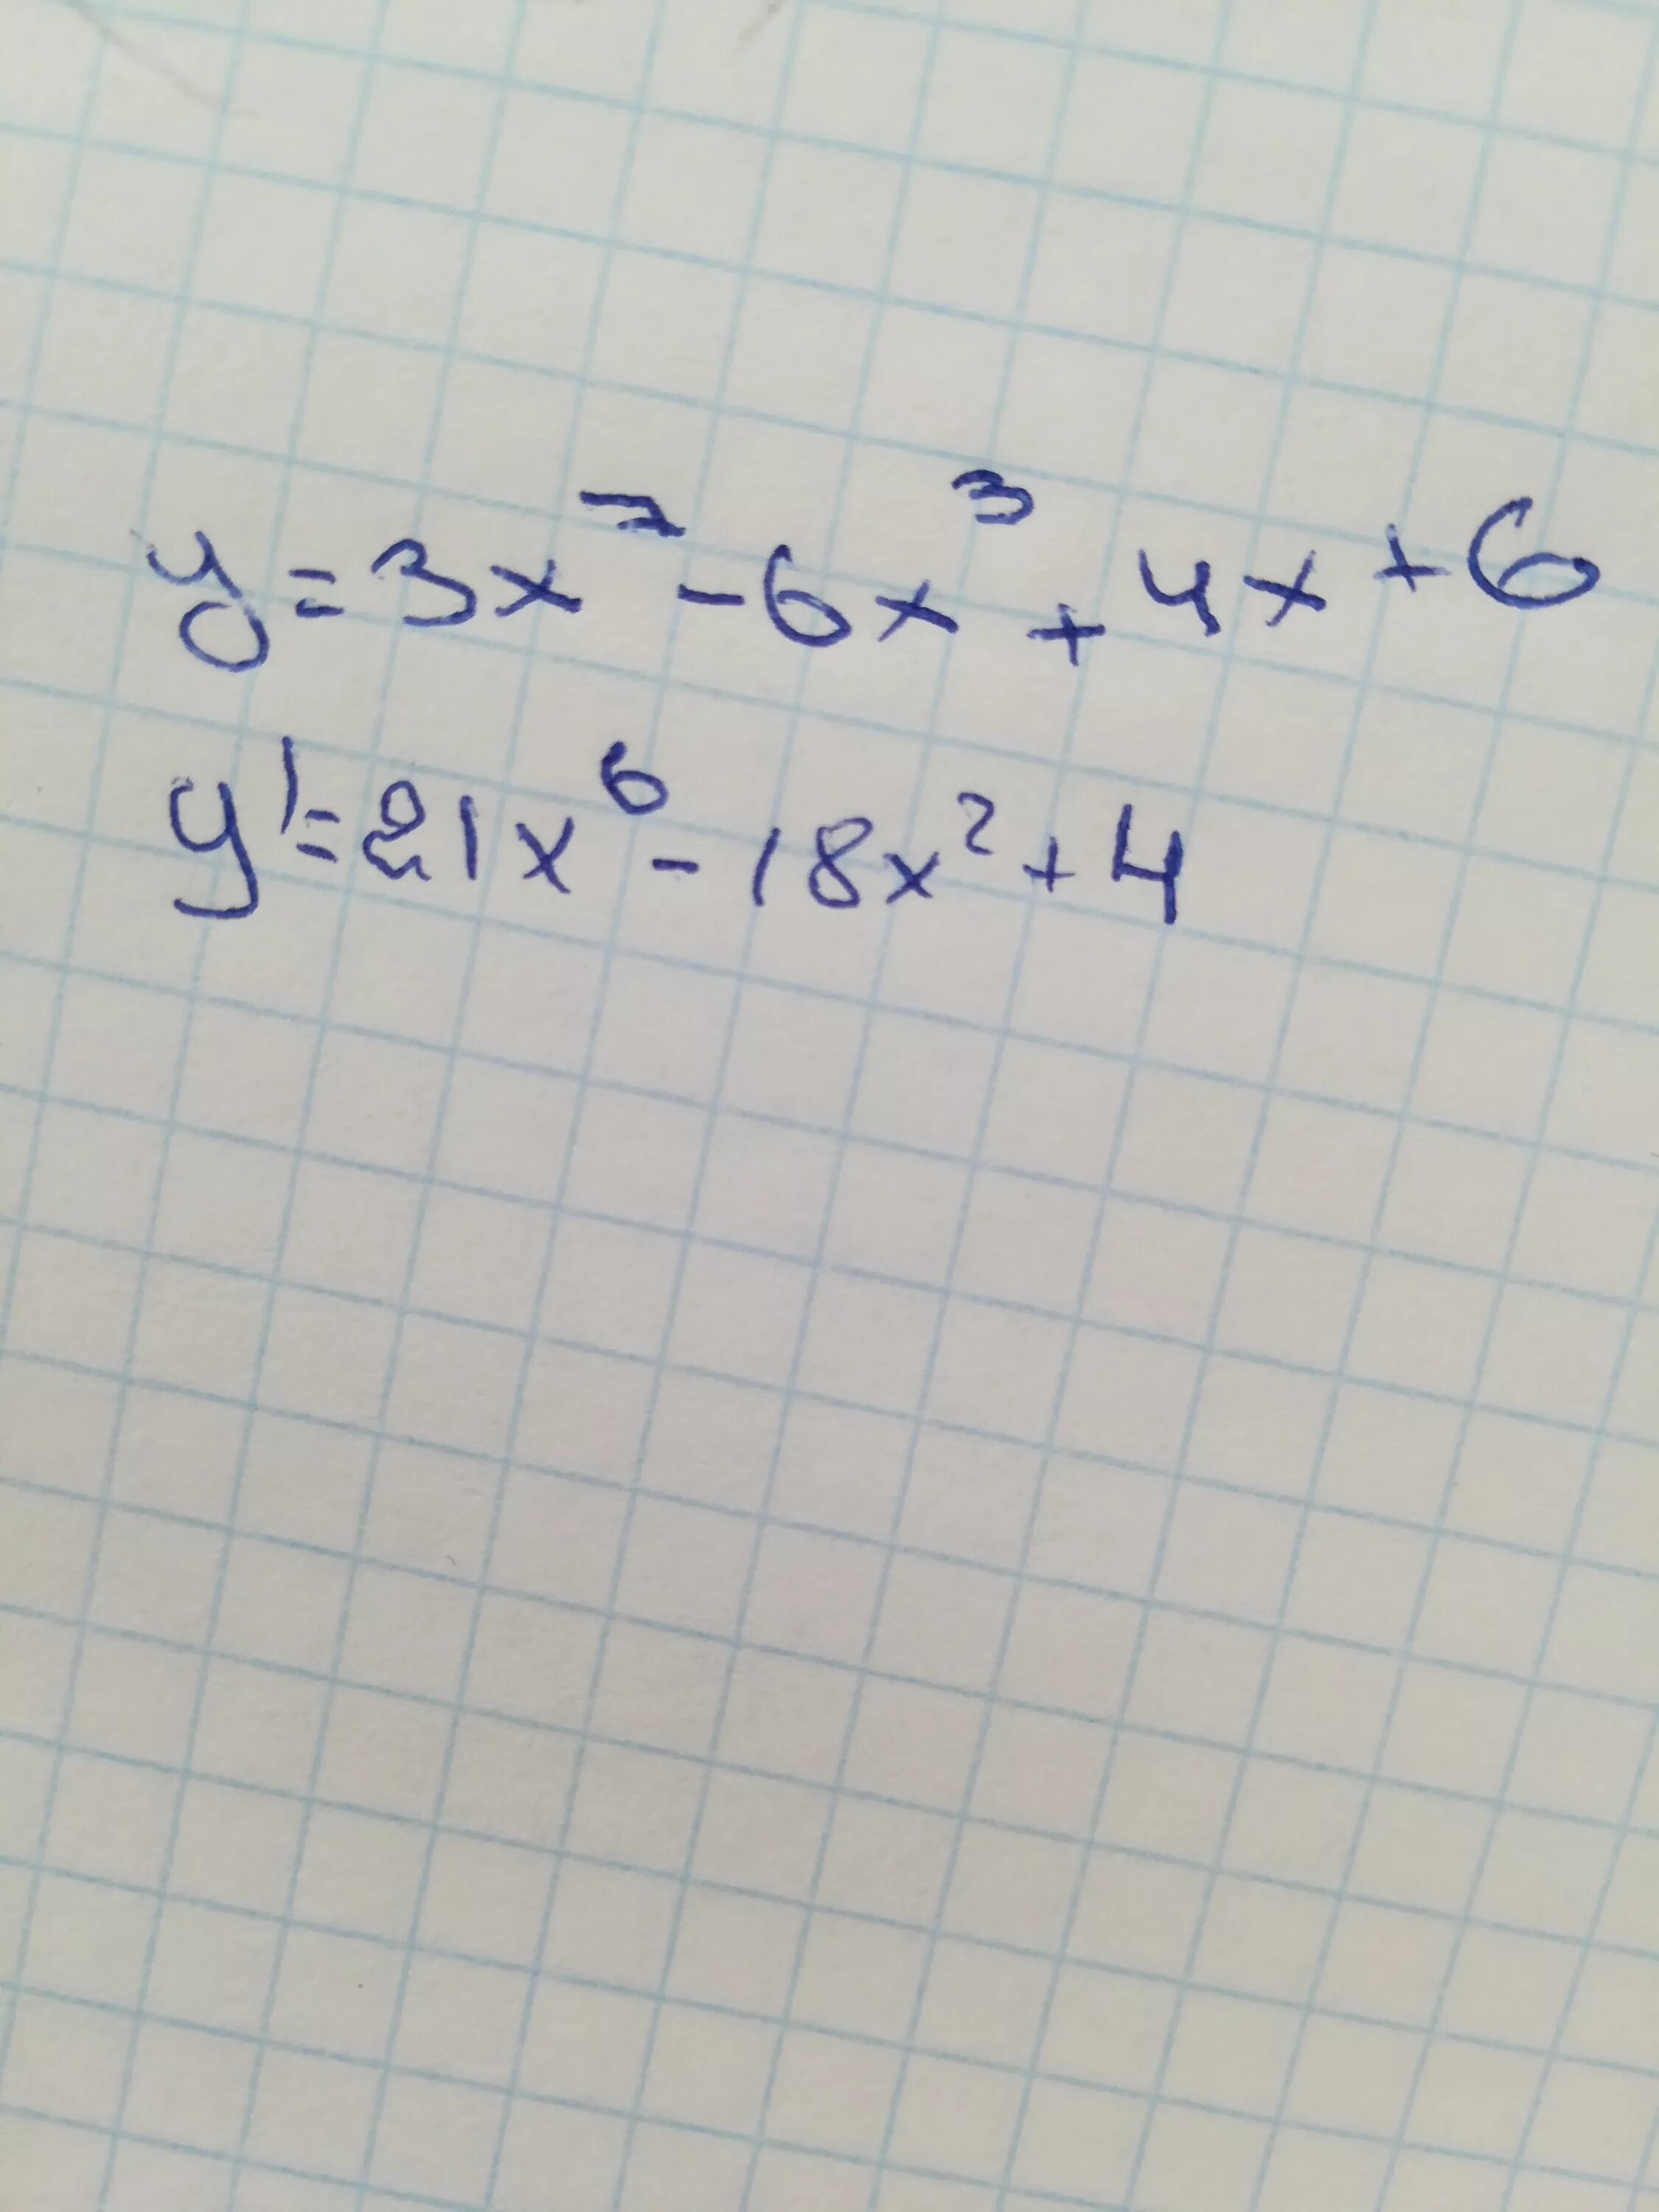 y=3x⁷-6x³+4x+6
y'=21x⁶-18x²+4